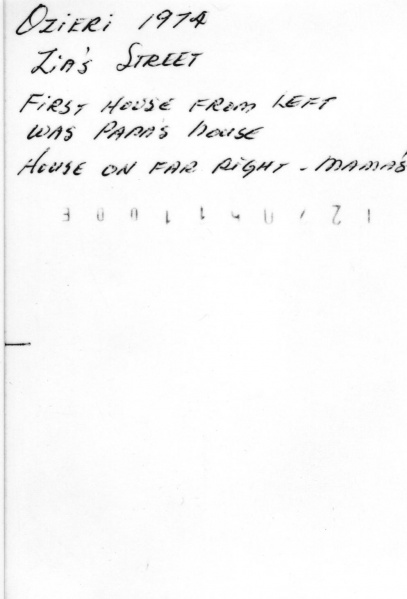 OZIERI 1974
ZIA'S STREET
FIRST HOUSE FROM LEFT
WAS PAPA'S HOUSE
HOUSE ON FAR RIGHT - MAMA'S